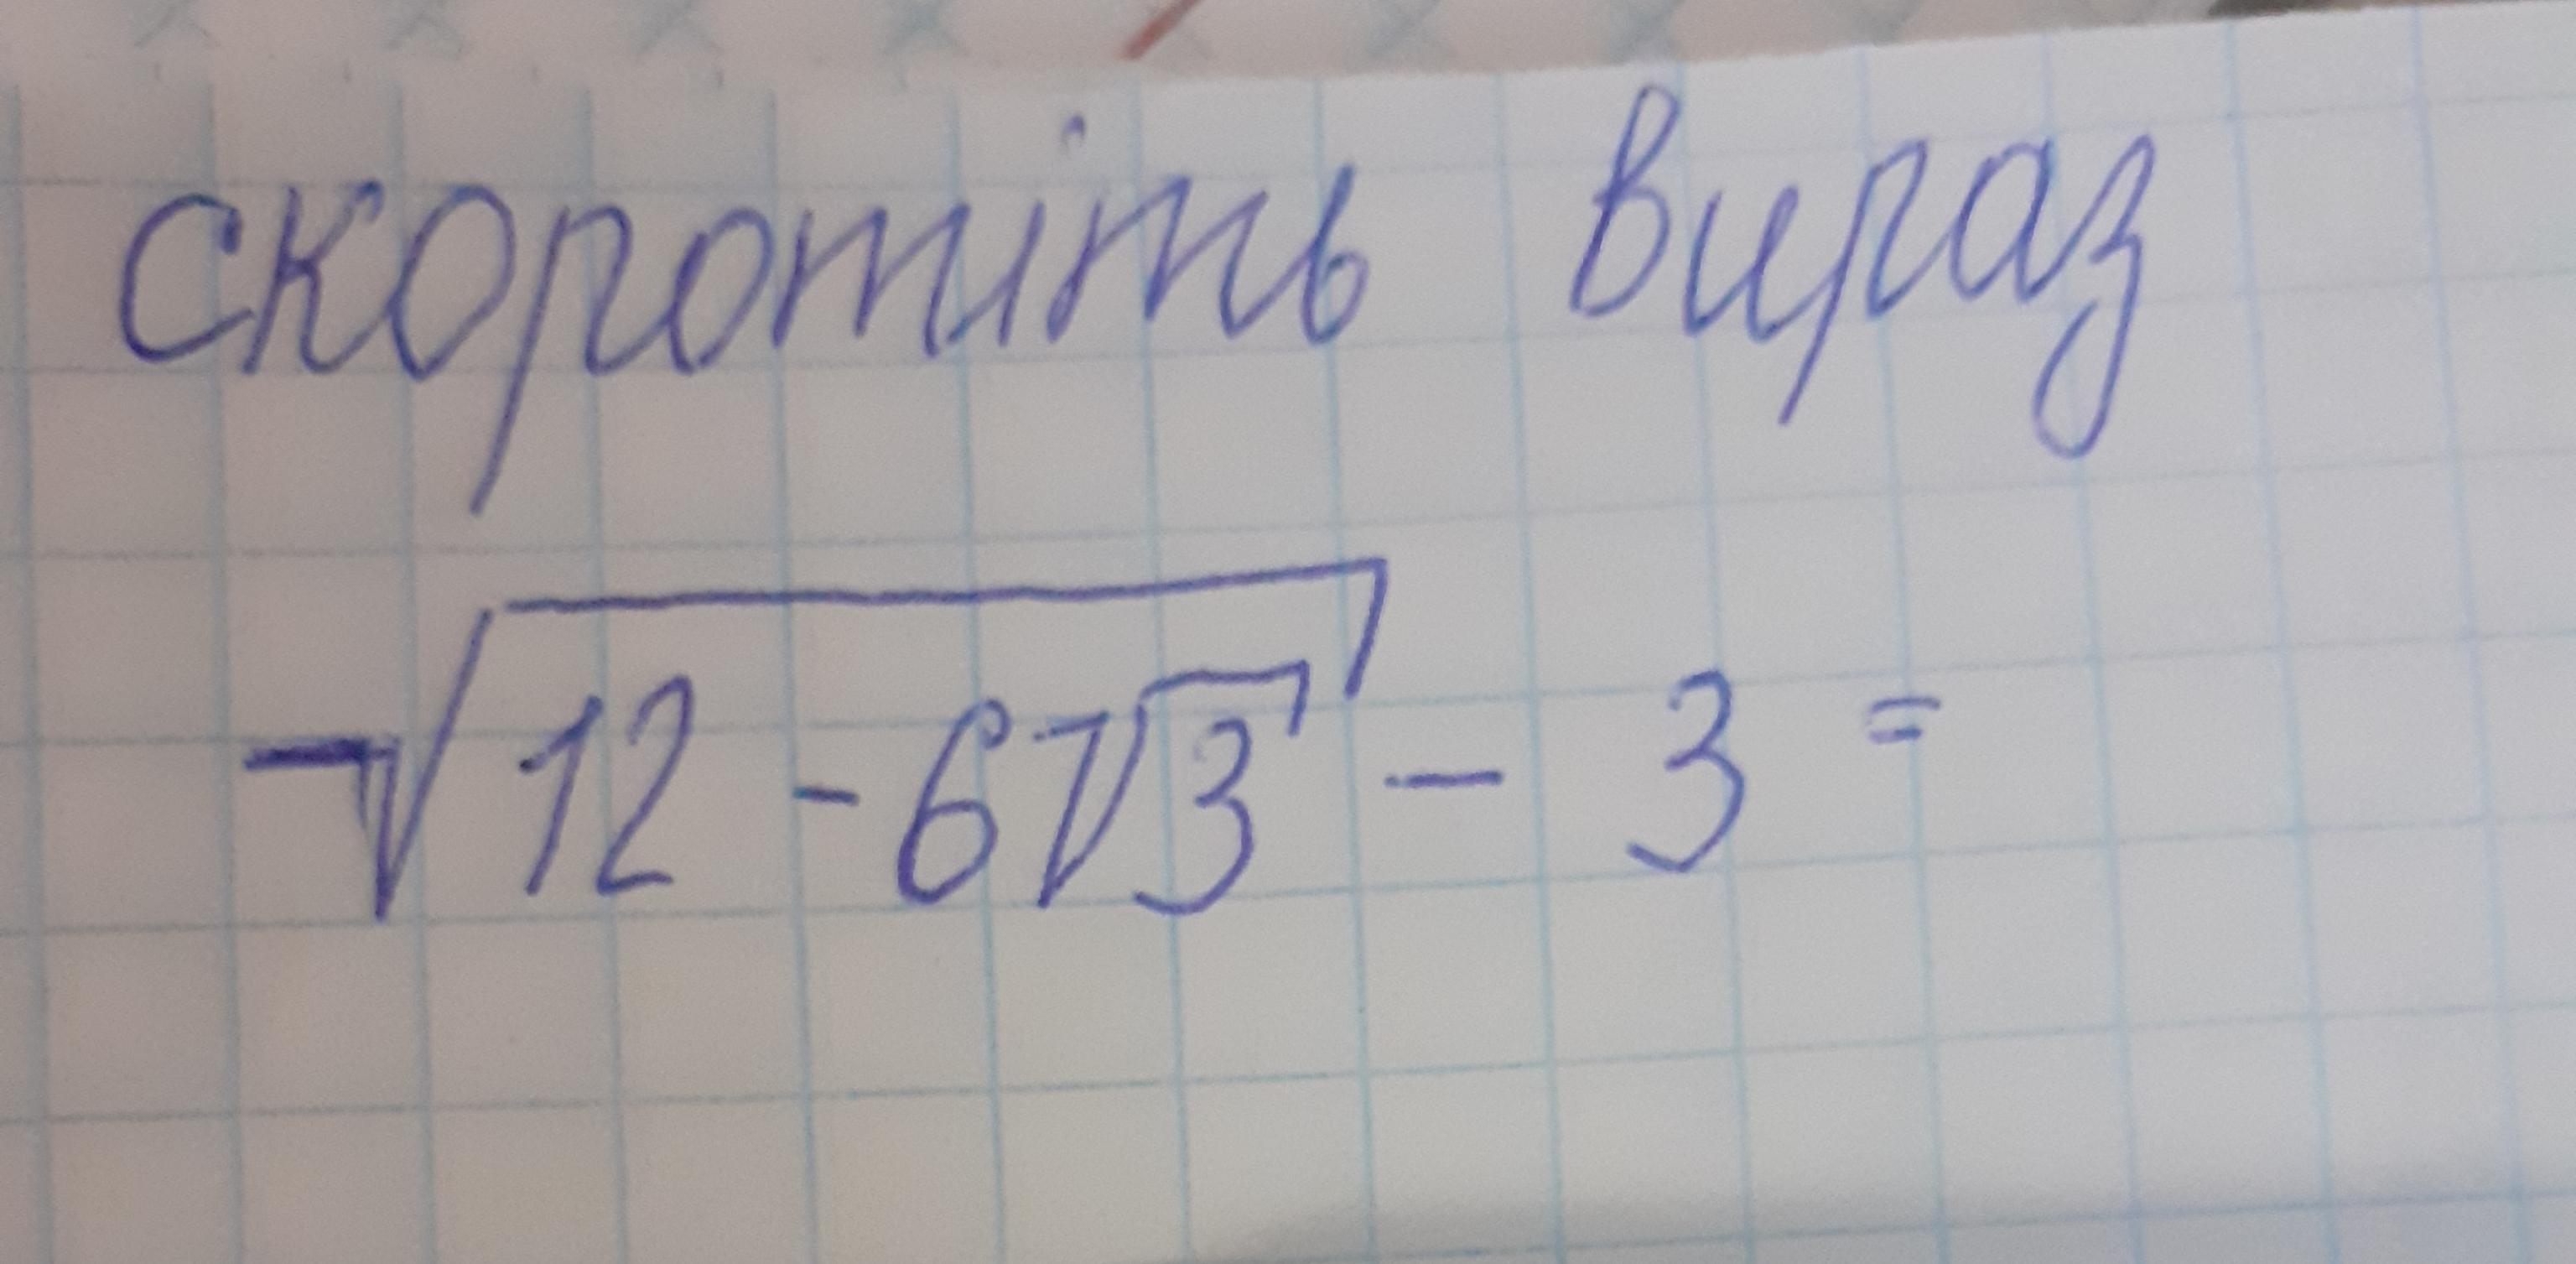 скоротіть вираз
√(12 - 6√3) - 3 =